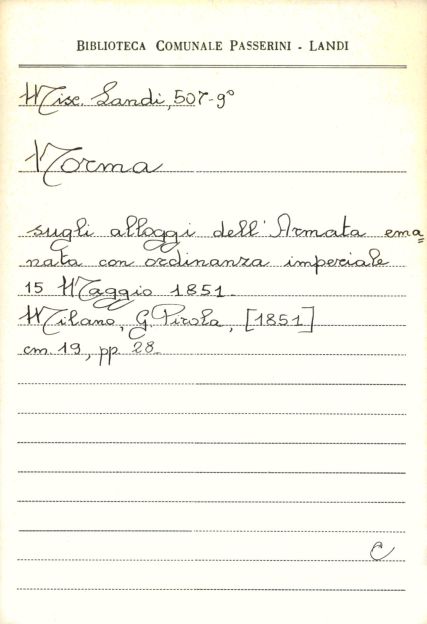 BIBLIOTECA COMUNALE PASSERINI - LANDI
Misc. Landi, 507-9°
Norma
sugli alloggi dell'Armata ema=
nata con ordinanza imperiale
15 Maggio 1851.
Milano, G. Pirola, [1851]
cm. 19, pp. 28.
C